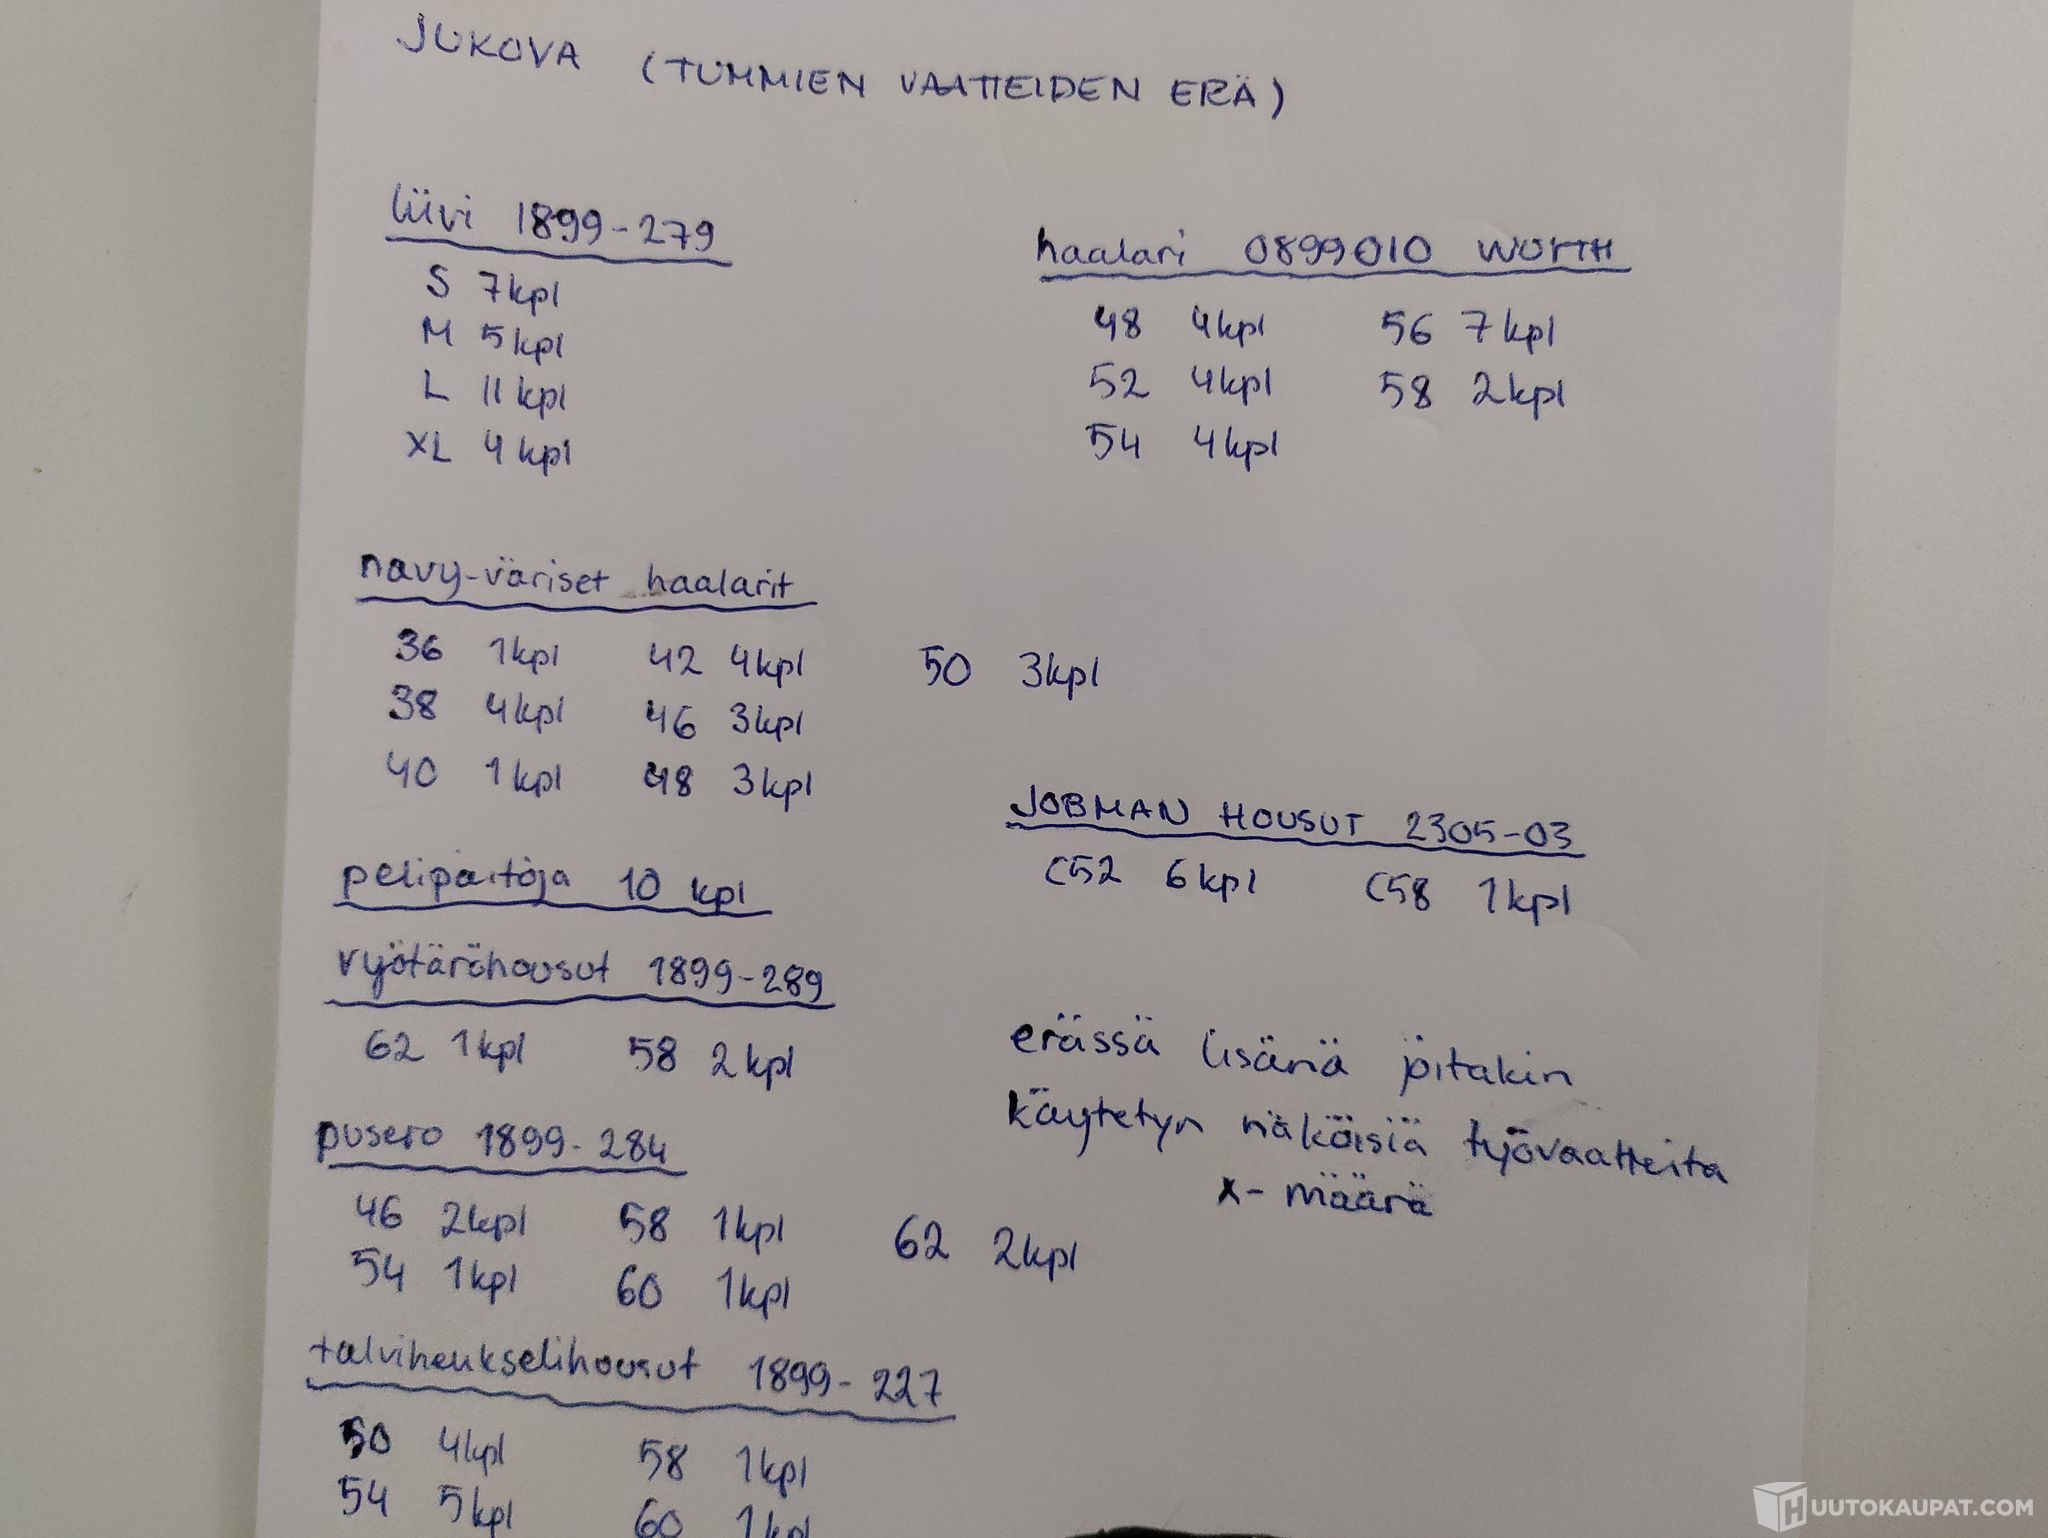 JUKOVA (TUMMIEN VAATTEIDEN ERÄ)
liivi 1899-279
S 7kpl
M 5kpl
L 11kpl
XL 4kpl
haalari 0899010 WÜRTH
48 4kpl 56 7kpl
52 4kpl 58 2kpl
54 4kpl
navy-väriset haalarit
36 1kpl 42 4kpl 50 3kpl
38 4kpl 46 3kpl
40 1kpl 48 3kpl
JOBMAN HOUSUT 2305-03
C52 6kpl C58 1kpl
pelipaitoja 10 kpl
vyötäröhousut 1899-289
62 1kpl 58 2kpl
erässä lisänä joitakin
käytetyn näköisiä työvaatteita
x-määrä
pusero 1899-284
46 2kpl 58 1kpl 62 2kpl
54 1kpl 60 1kpl
talvihenkselihousut 1899-227
50 4kpl 58 1kpl
54 5kpl 60 1kpl
HUUTOKAUPAT.COM